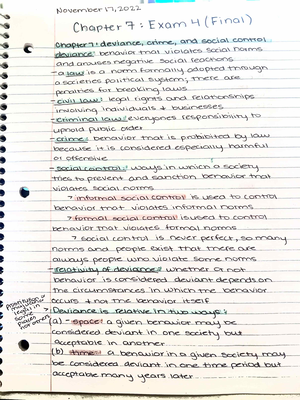 November 17, 2022
Chapter 7: Exam 4 (Final)
Chapter 7: deviance, crime, and social control
deviance: behavior that violates social norms
and arouses negative social reactions
- a law is a norm formally adopted through
a societies political system, there are
penalties for breaking laws
- civil law: legal rights and relationships
involving individuals + businesses
- criminal law: everyones responsibility to
uphold public order
- crime: behavior that is prohibited by law
because it is considered especially harmful
or offensive
- social control: ways in which a society
tries to prevent and sanction behavior that
violates social norms
> informal social control is used to control
behavior that violates informal norms
> formal social control is used to control
behavior that violates formal norms
> social control is never perfect, so many
norms and people exist that there are
always people who violate some norms
relativity of deviance: whether or not
behavior is considered deviant depends on
the circumstances in which the behavior
occurs + not the behavior itself
> Deviance is relative in two ways:
(a) - space: a given behavior may be
considered deviant in one society but
acceptable in another
(b) - time: a behavior in a given society may
be considered deviant in one time period but
acceptable many years later
legal in
some
places
not others